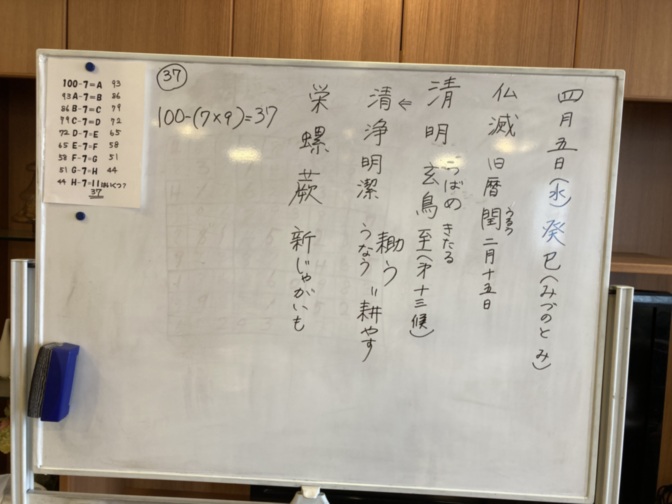 四月五日(水)癸巳(みづのとみ)
仏滅 旧暦閏二月十五日
うるう
清明 玄鳥至(才十三候)
つばめきたる
⇐
清浄明潔 耡う
うなう=耕やす
栄螺 蕨 新じゃがいも
37
100-(7×9)=37
100-7=A 93
93 A-7=B 86
86 B-7=C 79
79 C-7=D 72
72 D-7=E 65
65 E-7=F 58
58 F-7=G 51
51 G-7=H 44
44 H-7=Iはいくつ?
37